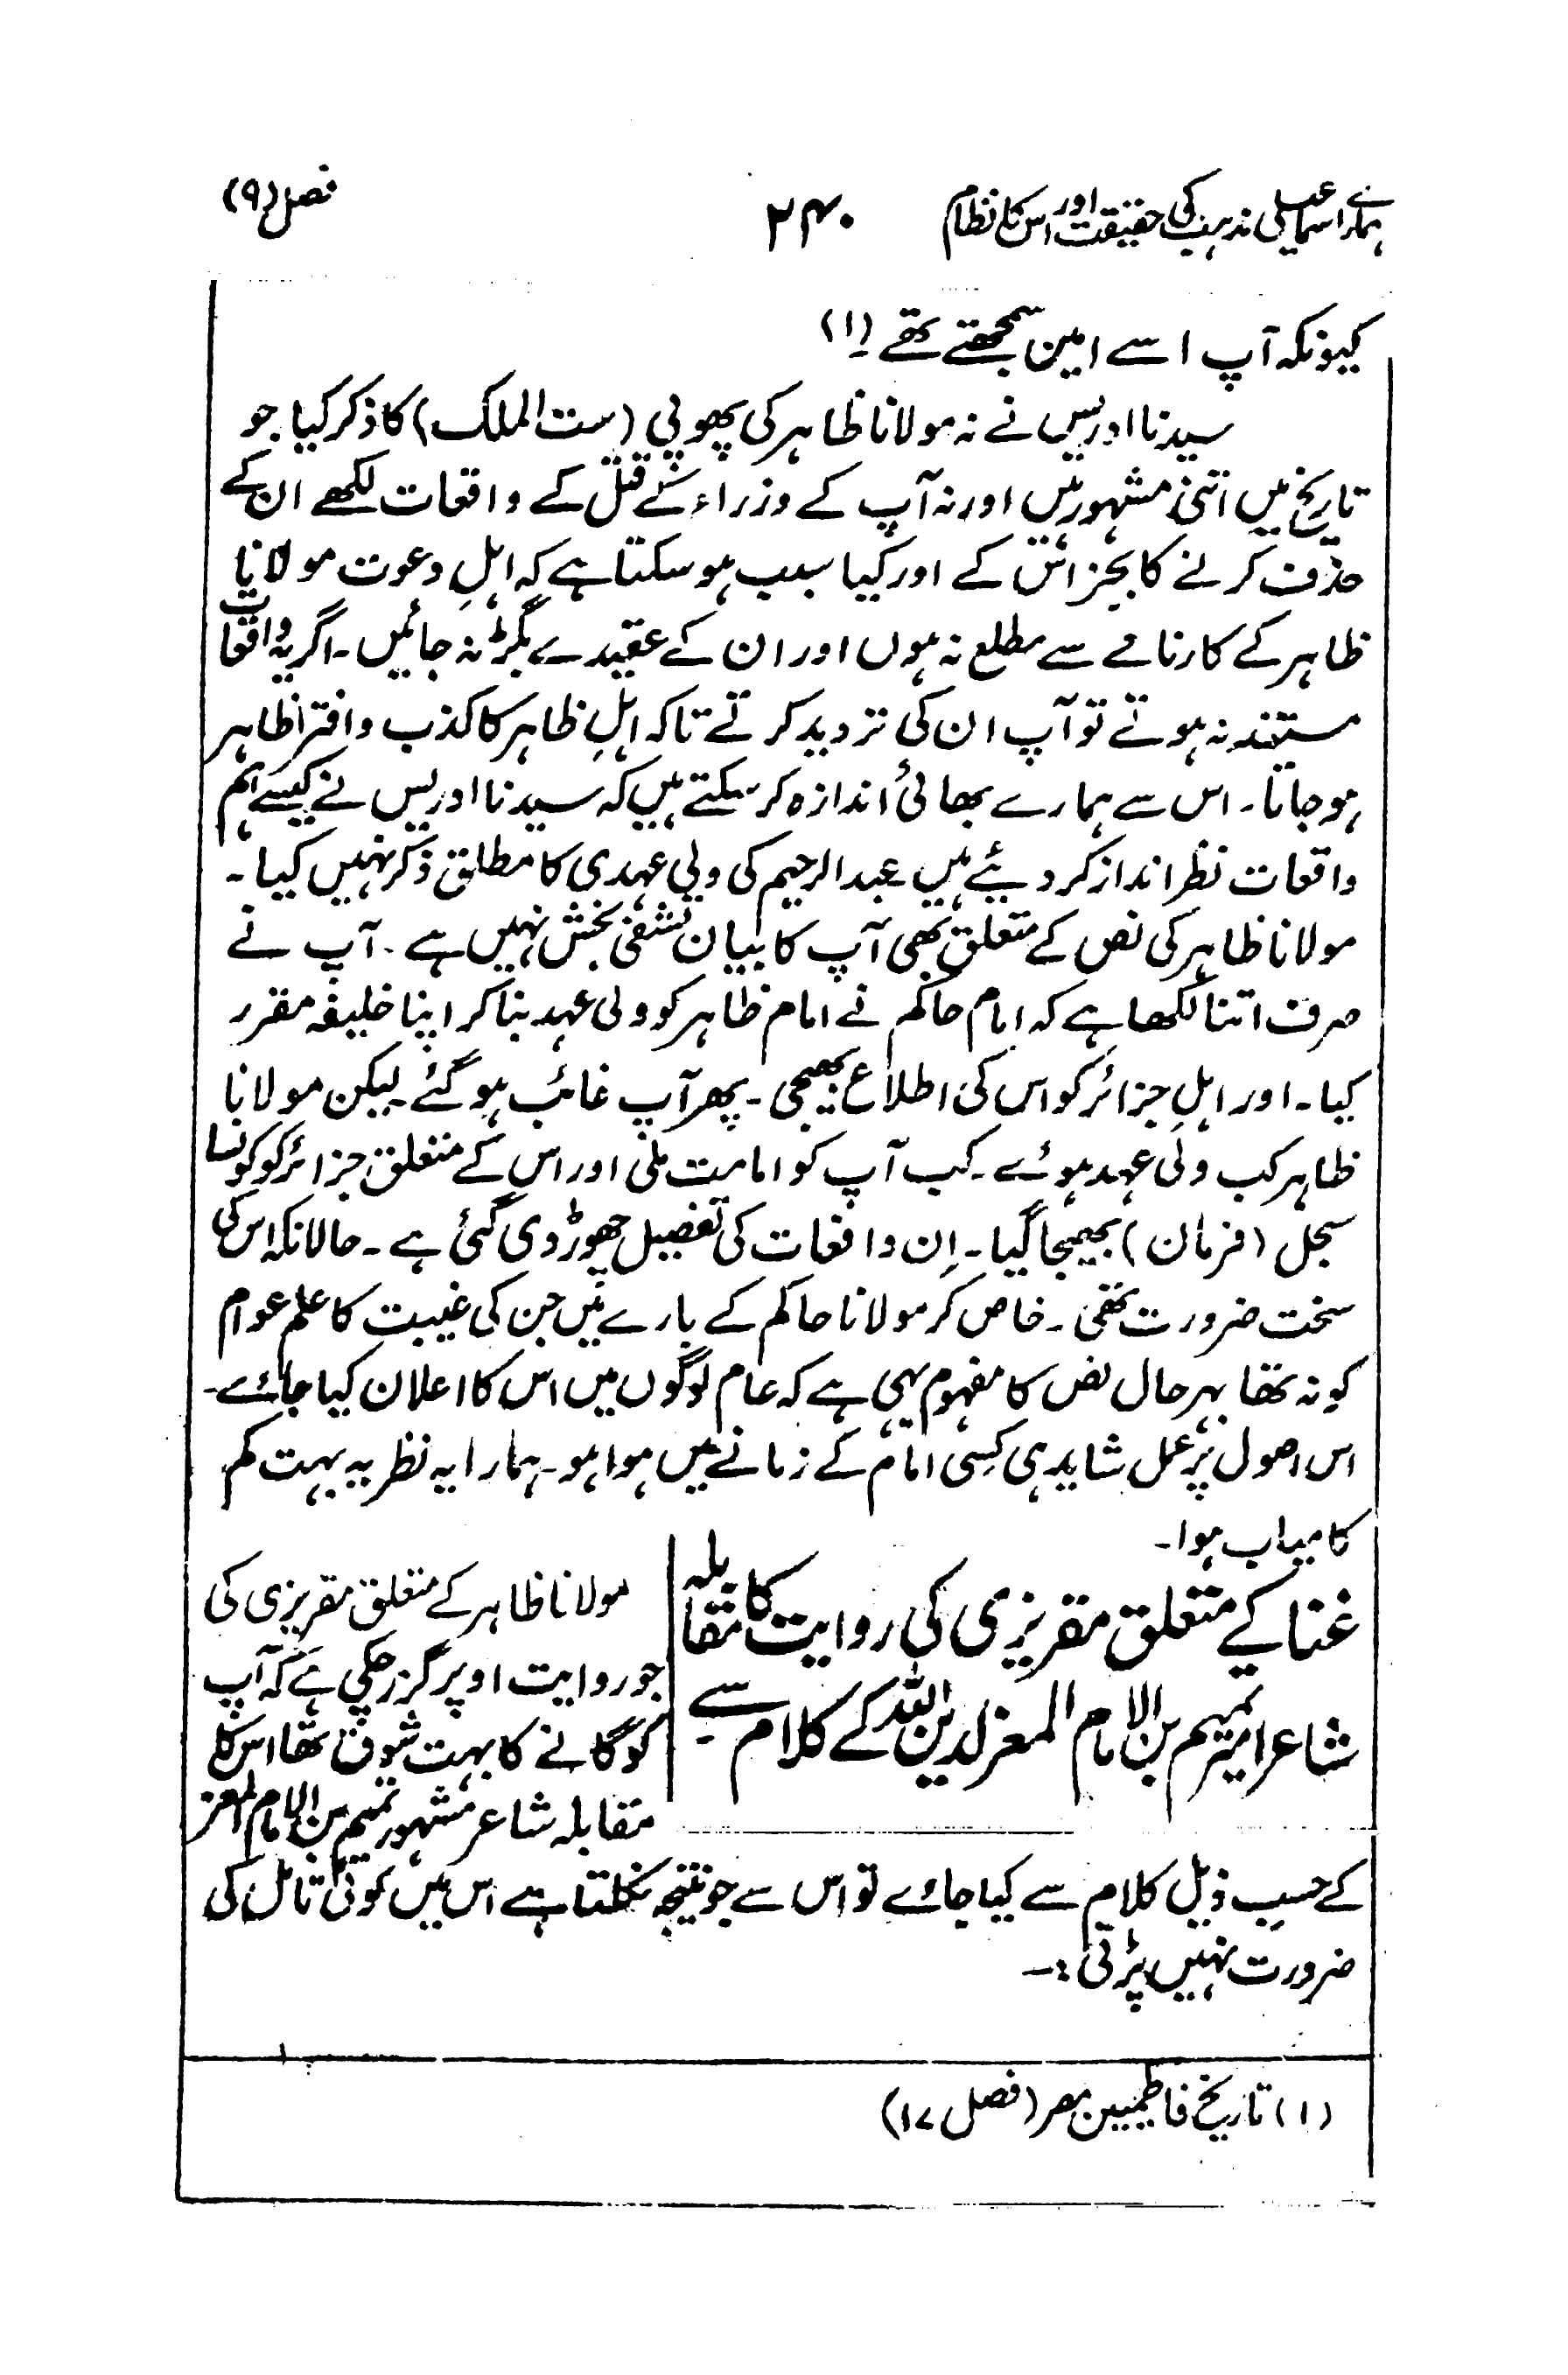 ہمارے اسماعیلی مذہب کی حقیقت اور اس کا نظام ۲۴۰ فصل (۹)
کیونکہ آپ اسے امین سمجھتے تھے (۱)
سیدنا ادریس نے نہ مولانا ظاہر کی پھوپی (ست الملک) کا ذکر کیا جو
تاریخ میں اتنی مشہور ہیں اور نہ آپ کے وزراء کے قتل کے واقعات لکھے ان کے
حذف کرنے کا بجز اس کے اور کیا سبب ہو سکتا ہے کہ اہلِ دعوت مولانا
ظاہر کے کارنامے سے مطلع نہ ہوں اور ان کے عقیدے بگڑ نہ جائیں۔ اگر یہ واقعات
مستند نہ ہوتے تو آپ ان کی تردید کرتے تاکہ اہلِ ظاہر کا کذب و افترا ظاہر
ہو جاتا۔ اس سے ہمارے بھائی اندازہ کر سکتے ہیں کہ سیدنا ادریس نے کیسے اہم
واقعات نظر انداز کر دیئے ہیں عبدالرحیم کی ولی عہدی کا مطلق ذکر نہیں کیا۔
مولانا ظاہر کی نص کے متعلق بھی آپ کا بیان تشفی بخش نہیں ہے۔ آپ نے
صرف اتنا لکھا ہے کہ امام حاکم نے امام ظاہر کو ولی عہد بنا کر اپنا خلیفہ مقرر
کیا۔ اور اہلِ جزائر کو اس کی اطلاع بھیجی۔ پھر آپ غائب ہو گئے۔ لیکن مولانا
ظاہر کب ولی عہد ہوئے۔ کب آپ کو امامت ملی اور اس کے متعلق جزائر کو کونسا
سجل (فرمان) بھیجا گیا۔ اِن واقعات کی تفصیل چھوڑ دی گئی ہے۔ حالانکہ اس کی
سخت ضرورت تھی۔ خاص کر مولانا حاکم کے بارے میں جن کی غیبت کا علم عوام
کو نہ تھا بہر حال نص کا مفہوم یہی ہے کہ عام لوگوں میں اس کا اعلان کیا جائے۔
اس اصول پر عمل شاید ہی کسی امام کے زمانے میں ہوا ہو۔ ہمارا یہ نظریہ بہت کم
کامیاب ہوا۔
غنا کے متعلق مقریزی کی روایت کا مقابلہ
شاعر امیر تمیم بن الامام المعز لدین اللہ کے کلام سے۔
مولانا ظاہر کے متعلق مقریزی کی
جو روایت اوپر گزر چکی ہے کہ آپ
کو گانے کا بہت شوق تھا اس کا
مقابلہ شاعر مشہور تمیم بن الامام المعز
کے حسبِ ذیل کلام سے کیا جائے تو اس سے جو نتیجہ نکلتا ہے اس میں کوئی تامل کی
ضرورت نہیں پڑتی :۔
(۱) تاریخ فاطمیین مصر (فصل ۱۷)